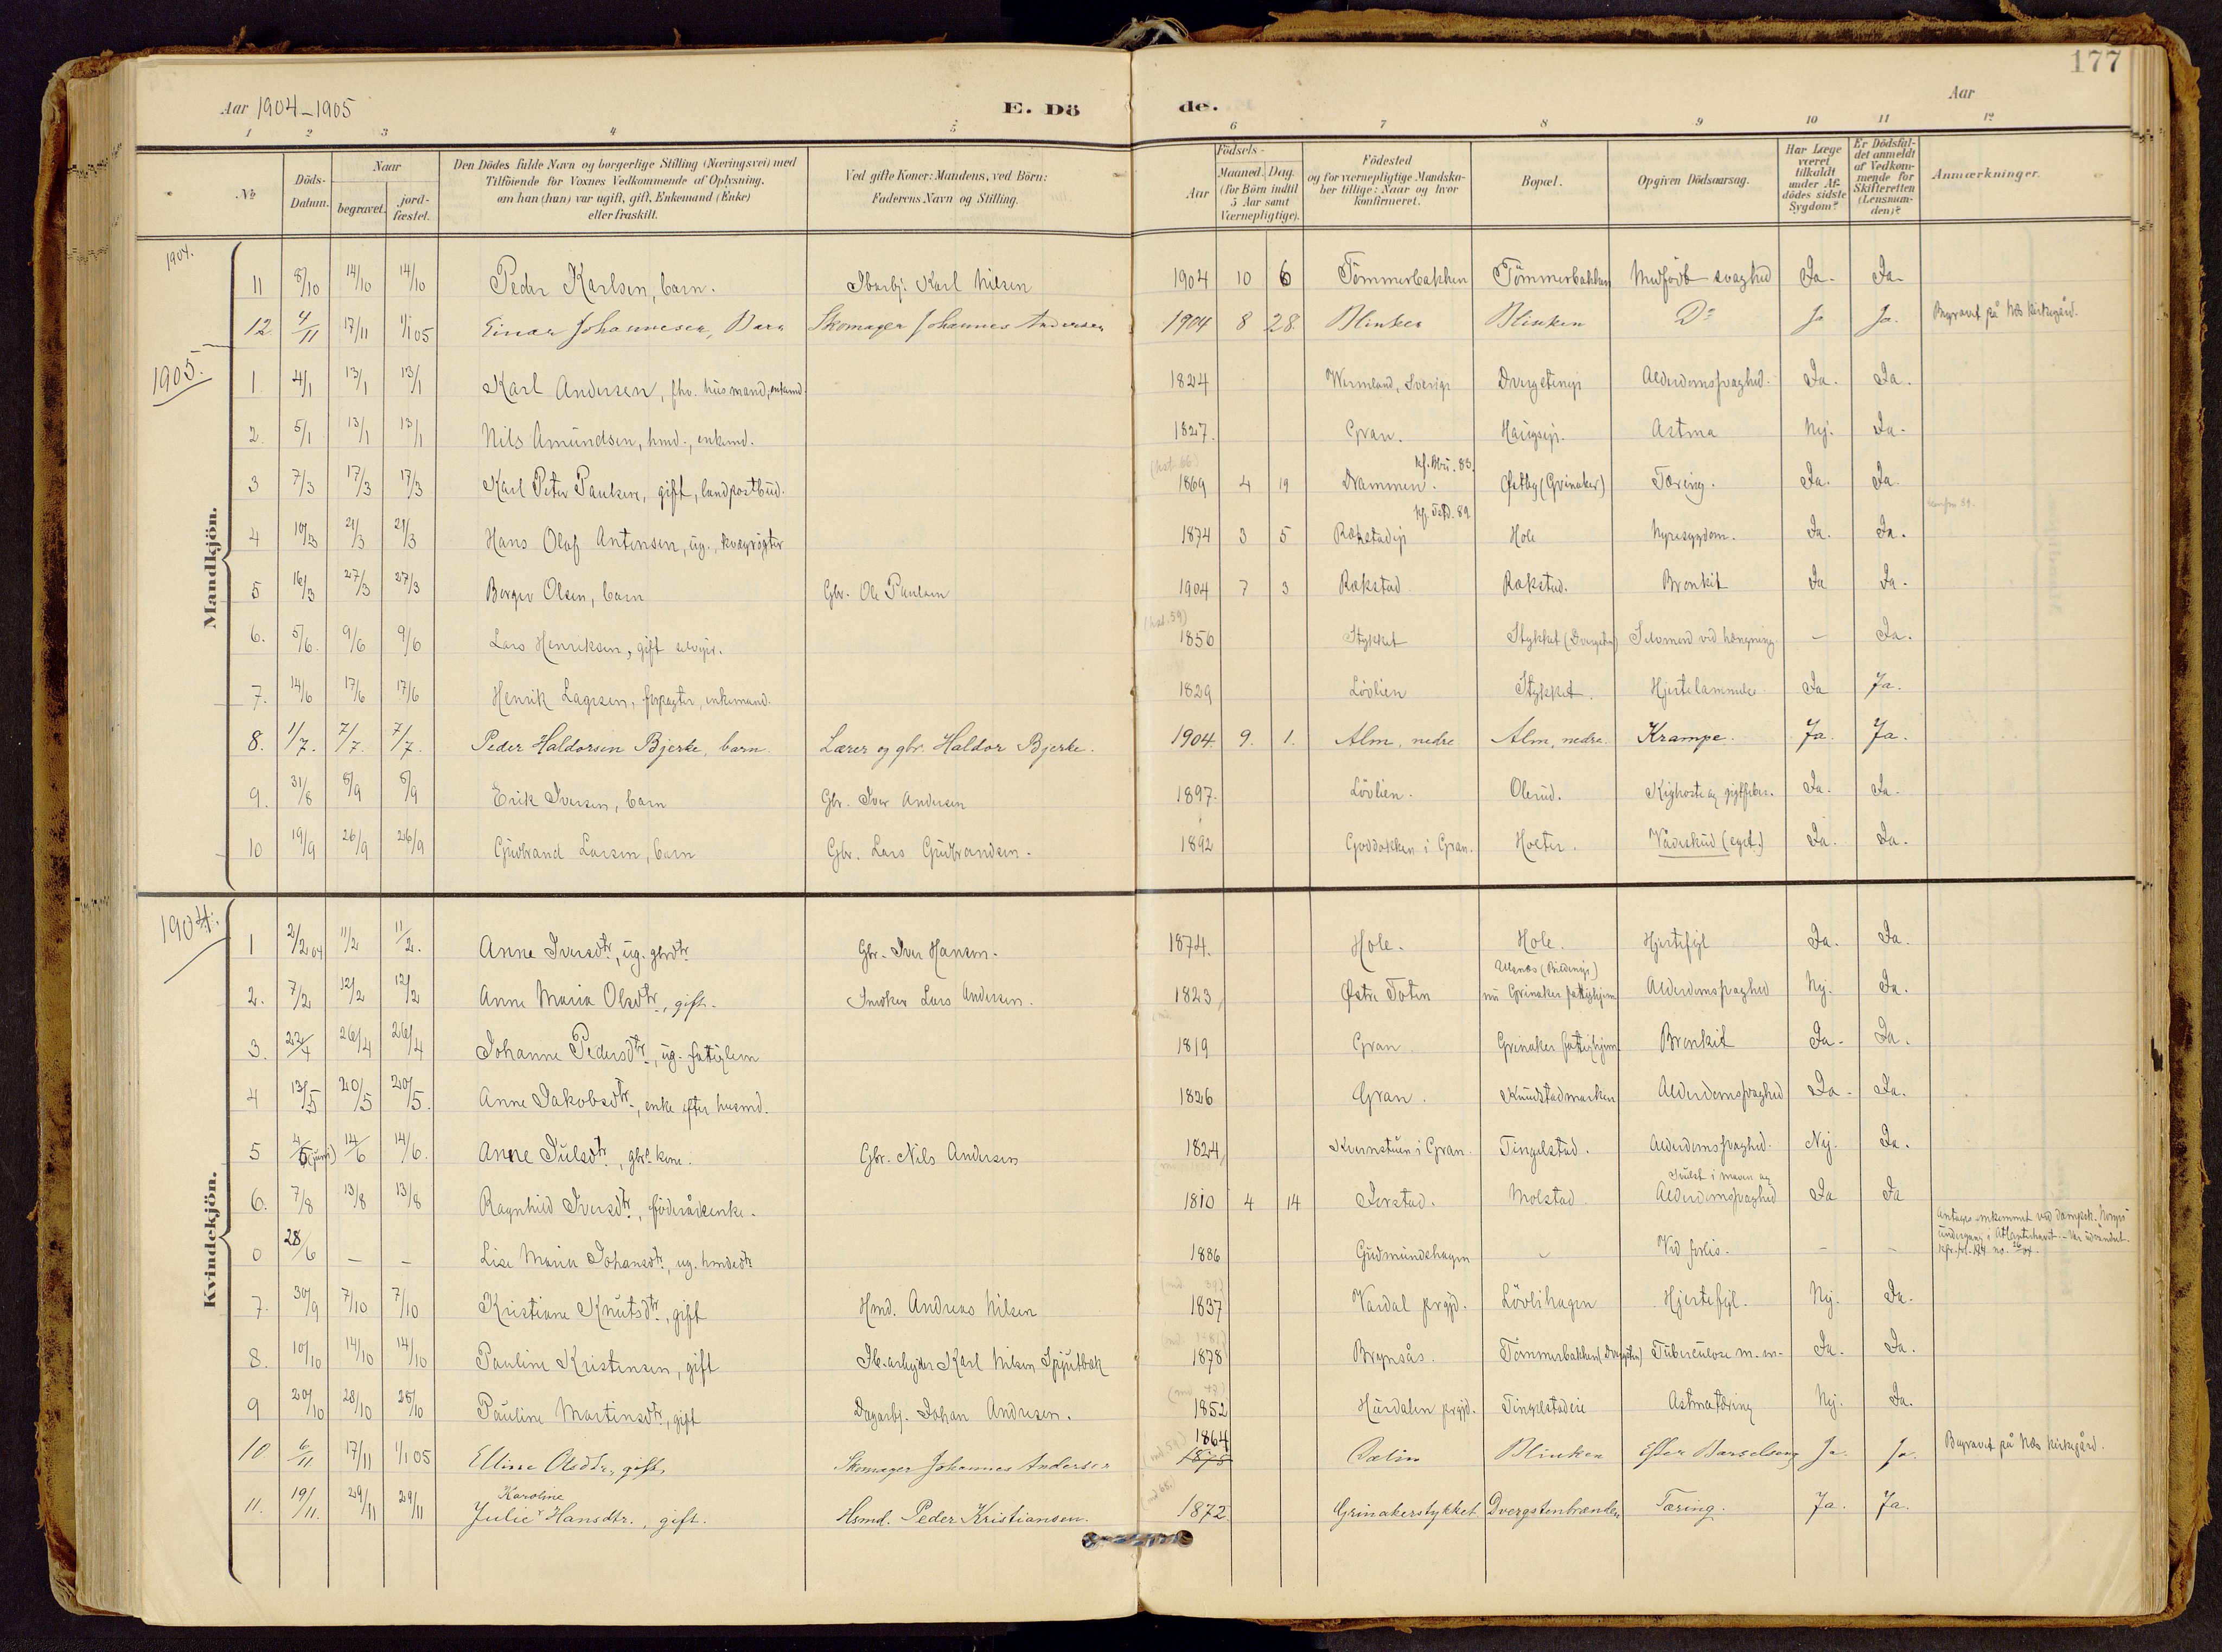 177
Aar 1904-1905
E. Dö
de.
Aar
1 2 3 4 5 6 7 8 9 10 11 12
№
Döds-Datum.
Naar
begravet.
jord-fæstet.
Den Dödes fulde Navn og borgerlige Stilling (Næringsvei) med
Tilföiende for Voxnes Vedkommende af Oplysning,
om han (hun) var ugift, gift, Enkemand (Enke)
eller fraskilt.
Ved gifte Koner: Mandens, ved Börn:
Faderens Navn og Stilling.
Födsels-
Aar
Maaned. Dag.
(for Börn indtil
5 Aar samt
Værnepligtige).
Födested
og for værnepligtige Mandska-
ber tillige: Naar og hvor
konfirmeret.
Bopæl.
Opgiven Dödsaarsag.
Har Læge
været
tilkaldt
under Af-
dödes sidste
Sygdom?
Er Dödsfal-
det anmeldt
af Vedkom-
mende for
Skifteretten
(Lensman-
den)?
Anmærkninger.
1904.
Mandkjön.
11 8/10 14/10 14/10 Peder Karlsen, barn. Jbarbj. Karl Nilsen 1904 10 6 Tömmerbakken Tömmerbakken Medfödt svaghed Ja. Ja.
12 4/11 17/11 1/1 05 Einar Johannesen, Barn Skomager Johannes Andersen 1904 8 28. Blinken Blinken Do Ja Ja. Begravet på Næs kirkegård.
1905.
1. 4/1 13/1 13/1 Karl Andersen, fhv. husmand, enkemd. 1824 Wermland, Sverige Dvergsteneje Alderdomssvaghed. Ja. Ja.
2. 5/1 13/1 13/1 Nils Amundsen, hmd., enkemd. 1827. Gran. Haugsej. Astma Nej. Ja.
3 7/3 17/3 17/3 Karl Peter Paulsen, gift, landpostbud. 1869 4 19 Drammen. Østby (Grinaker) Tæring. Ja. Ja.
4 10/3 21/3 21/3 Hans Olaf Antonsen, ug., kvægrögter 1874 3 5 Rækstadej Hole Nyresygdom. Ja. Ja.
5 16/3 27/3 27/3 Borger Olsen, barn Gbr. Ole Paulsen 1904 7 3 Rækstad Rækstad. Bronkit Ja Ja.
6. 5/6 9/6 9/6 Lars Henriksen, gift selvejer. 1856 Stykket Stykket (Dvergsten) Selvmord ved hængning. – Ja.
7. 14/6 17/6 17/6 Henrik Larsen, forpagter, enkemand. 1829 Lövlien Stykket. Hjertelammelse Ja Ja.
8. 1/7. 7/7. 7/7. Peder Haldorsen Bjerke, barn. Lærer og gbr. Haldor Bjerke. 1904. 9. 1. Alm, nedre Alm, nedre. Krampe. Ja. Ja.
9. 31/8 8/9 8/9 Erik Iversen, barn Gbr. Iver Andersen 1897. Lövlien. Olerud. Kighoste og gigtfeber. Ja. Ja.
10 19/9 26/9 26/9 Gudbrand Larsen, barn Gbr. Lars Gudbrandsen. 1892 Goddakken i Gran. Holter. Vådeskud (eget.) Ja. Ja.
1904.
Kvindekjön.
1 2/2 04 11/2 11/2. Anne Iversdtr, ug. gbrdtr Gbr. Iver Hansen. 1874. Hole. Hole. Hjertefejl Ja. Ja.
2. 7/2 12/2 12/2 Anne Maria Olsdtr, gift. Snedker Lars Andersen. 1823 Østre Toten nu Grinaker fattighjem Alderdomssvaghed Nej. Ja.
3. 22/4 26/4 26/4 Johanne Pedersdtr, ug. fattiglem 1819 Gran Grinaker fattighjem Bronkit Ja. Ja.
4 13/5 20/5 20/5. Anne Jakobsdtr, enke efter husmd. 1826 Gran. Knudstadmarken Alderdomssvaghed Ja. Ja.
5 4/5 (juni) 14/6 14/6. Anne Julsdtr, gbrs kone. Gbr. Nils Andersen 1824 Kvernstuen i Gran. Tingelstad. Alderdomssvaghed. Nej. Ja.
6. 7/8 13/8 13/8 Ragnhild Iversdtr, föderådsenke. 1810 4 14 Jorstad. Molstad Svulst i maven og Alderdomssvaghed Ja Ja
0 28/6 – – Lise Maria Johansdtr, ug. hmdsdtr 1886 Gudmundshagen – Ved forlis. – – Antages omkommet ved dampsk. Norges undergang i Atlanterhavet.
7. 30/9 7/10 7/10 Kristiane Knutsdtr, gift Hmd. Andreas Nilsen 1837 Vardal prgjd. Lövlihagen Hjertefejl. Nej. Ja.
8. 10/10 14/10 14/10 Pauline Kristensen, gift Jb.arbejder Karl Nilsen Spjutbæk 1878 Brynsås. Tömmerbakken (Dvergsten) Tuberculose m. m. Ja. Ja.
9 20/10 28/10 28/10 Pauline Martinsdtr, gift Dagarbj. Johan Andersen. 1852 Hurdalen prgjd. Tingelstadeie Astmatæring Nej. Ja.
10. 6/11 17/11 1/1 05 Elline Olsdtr, gift, Skomager Johannes Andersen 1864 1878 Dælin Blinken Efter Barselseng Ja. Ja. Begravet på Næs kirkegård.
11. 19/11. 29/11 29/11 Julie Karoline Hansdtr., gift. Hsmd. Peder Kristiansen. 1872 Grinakerstykket Dvergstenbrænden Tæring. Ja. Ja.